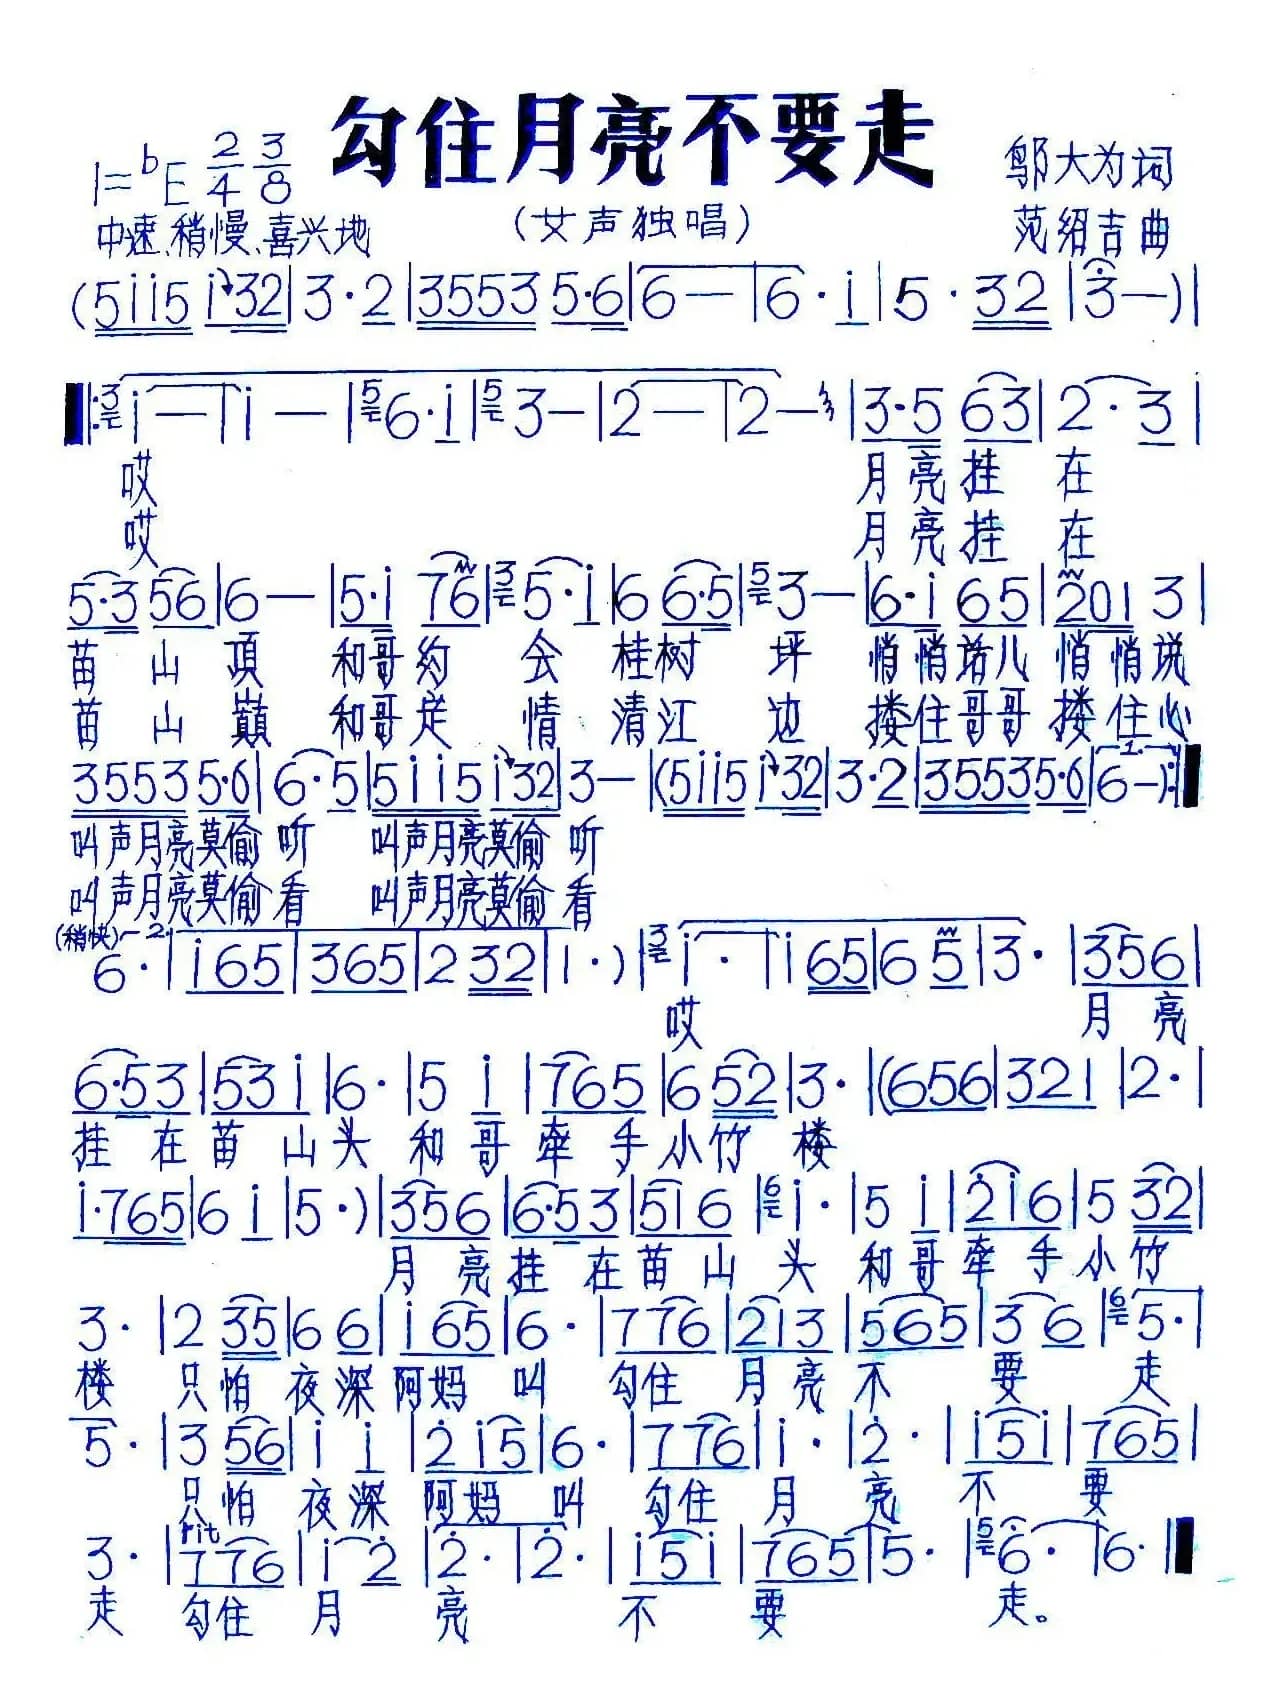 勾住月亮不要走
1=bE 2/4 3/8
邬大为词
中速、稍慢、喜兴地
(女声独唱)
范绍吉曲
(5ii5 i32|3·2|3553 5·6|6—|6·i|5·32|3—)|
‖:3i—|i—|5 6·i|5 3—|2—|2—|3·5 63|2·3|
哎 月亮挂 在
哎 月亮挂 在
5·3 56|6—|5·i 76|3 5·i|6 6·5|5 3—|6·i 65|201 3|
苗 山 頂 和哥约 会 桂树 坪 悄悄话儿 悄悄说
苗 山 巅 和哥定 情 清江 边 搂住哥哥 搂住心
3553 5·6|6·5|5ii5 i32|3—|(5ii5 i32|3·2|3553 5·6|1. 6—):‖
叫声月亮莫偷 听 叫声月亮莫偷 听
叫声月亮莫偷 看 叫声月亮莫偷 看
(稍快) 2. 6·|i65|365|2 32|1·)|3 i·|i 65|6 5|3·|356|
哎 月 亮
6·53|53i|6·|5 i|765|6 52|3·|(656|321|2·|
挂 在 苗 山 头 和 哥 牵 手 小 竹 楼
i·765|6 i|5·)|356|6·53|5i6|6 i·|5 i|2i6|5 32|
月 亮 挂 在 苗 山 头 和 哥 牵 手 小 竹
3·|2 35|6 6|i65|6·|776|2i3|565|3 6|6 5·|
楼 只 怕 夜 深 阿妈 叫 勾住 月 亮 不 要 走
5·|3 56|i i|2i5|6·|776|i·|2·|i5i|765|
只 怕 夜 深 阿妈 叫 勾住 月 亮 不 要
rit
3·|776|i 2|2·|2·|i5i|765|5·|5 6·|6·‖
走 勾住 月 亮 不 要 走。